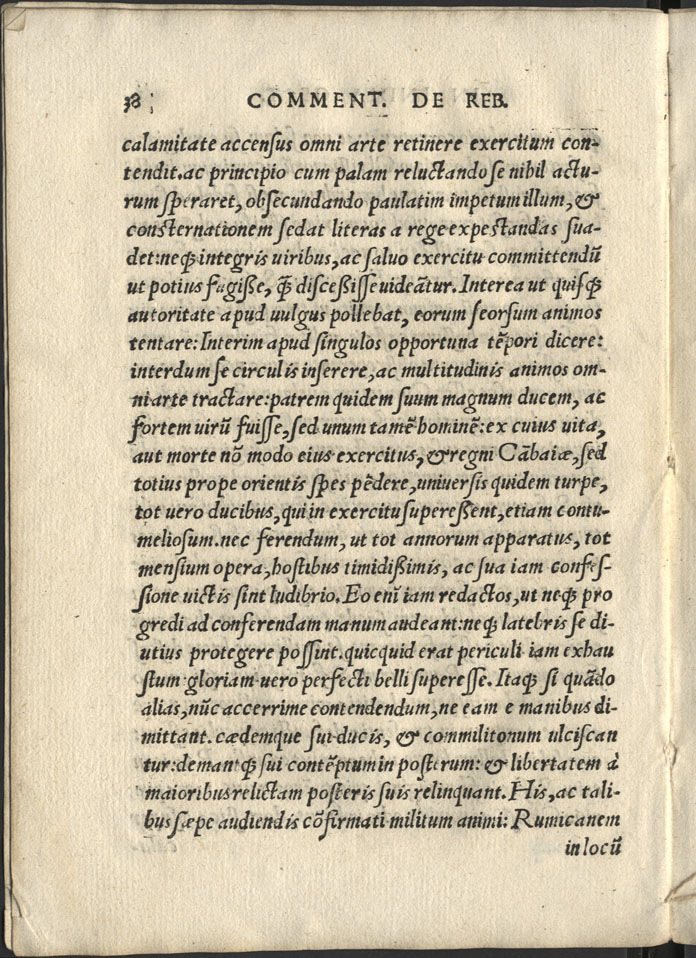 38 COMMENT. DE REB.
calamitate accensus omni arte retinere exercitum con-
tendit. ac principio cum palam reluctando se nihil actu-
rum speraret, obsecundando paulatim impetum illum, &
consternationem sedat literas a rege expectandas sua-
det: neq; integris uiribus, ac saluo exercitu committendũ
ut potius fugiße, q̃ disceßisse uideãtur. Interea ut quisq;
autoritate apud uulgus pollebat, eorum seorsum animos
tentare: Interim apud singulos opportuna tẽpori dicere:
interdum se circulis inserere, ac multitudinis animos om-
ni arte tractare: patrem quidem suum magnum ducem, ac
fortem uirũ fuisse, sed unum tamẽ hominẽ: ex cuius uita,
aut morte nõ modo eius exercitus, & regni Cãbaiæ, sed
totius prope orientis spes pẽdere, uniuersis quidem turpe,
tot uero ducibus, qui in exercitu supereßent, etiam contu-
meliosum. nec ferendum, ut tot annorum apparatus, tot
mensium opera, hostibus timidißimis, ac sua iam confes-
sione uictis sint ludibrio. Eo enĩ iam redactos, ut neq; pro
gredi ad conferendam manum audeant: neq; latebris se di-
utius protegere possint. quicquid erat periculi iam exhau
stum gloriam uero perfecti belli superesse. Itaq; si quãdo
alias, nũc accerrime contendendum, ne eam e manibus di-
mittant. cædemque sui ducis, & commilitonum ulciscan
tur: demantq; sui contẽptum in posterum: & libertatem à
maioribus relictam posteris suis relinquant. His, ac tali-
bus sæpe audiendis cõfirmati militum animi: Rumicanem
in locũ